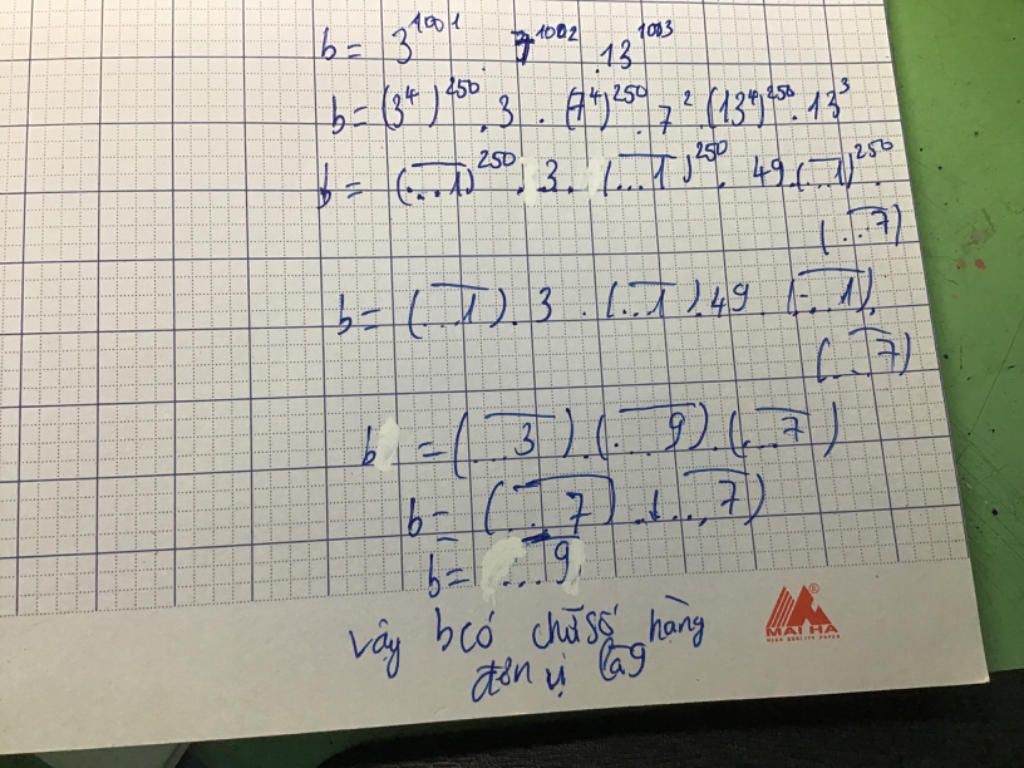 b = 3^1001 . 7^1002 . 13^1003
b = (3^4)^250 . 3 . (7^4)^250 . 7^2 . (13^4)^250 . 13^3
b = (...1)^250 . 3 . (...1)^250 . 49 . (...1)^250 .
(...7)
b = (...1) . 3 . (...1) . 49 (...1) .
(...7)
b = (...3) . (...9) . (...7)
b = (...7) . (...7)
b = ...9
vậy b có chữ số hàng
đơn vị là 9
MAI HA
HIGH QUALITY PAPER